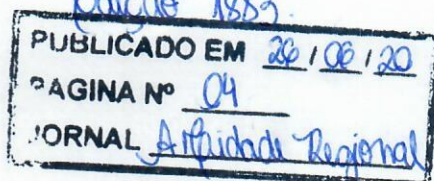 Edição 1889.
PUBLICADO EM 26/06/20
PAGINA Nº 04
JORNAL Atividade Regional